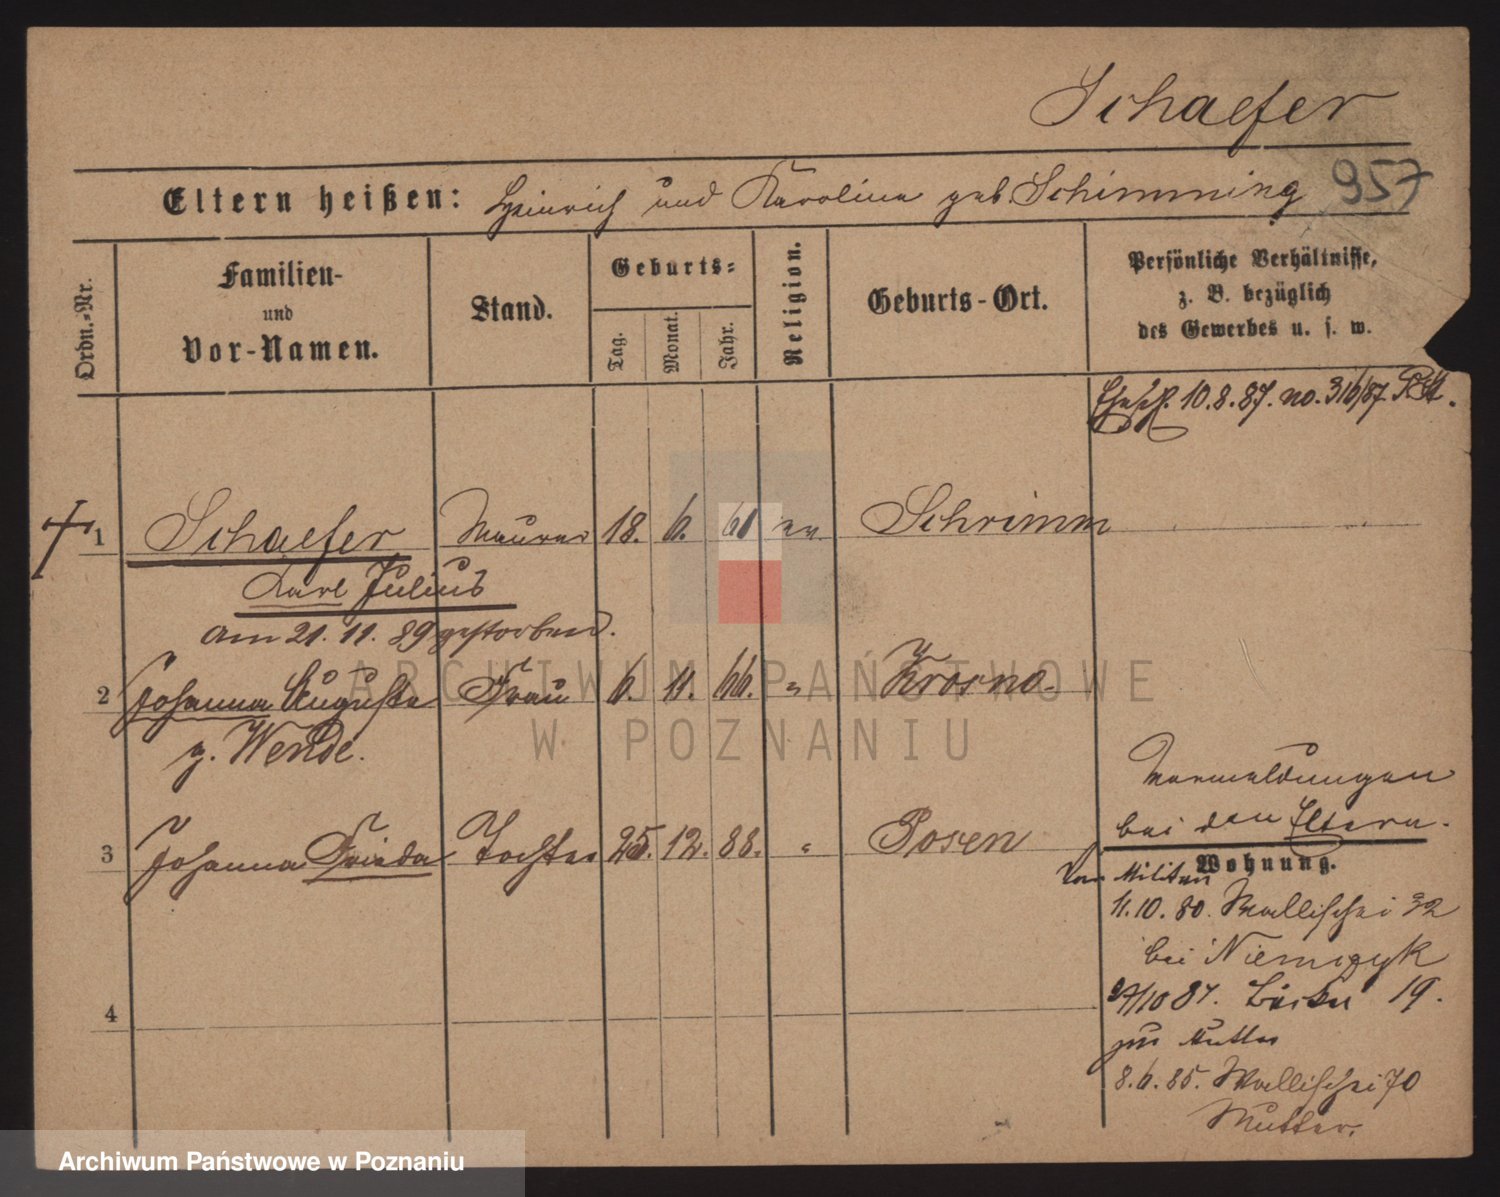 Schaefer
Eltern heißen: Heinrich und Karoline geb. Schimming 957
Ordn.-Nr.
Familien-
und
Vor-Namen.
Stand.
Geburts-
Tag.
Monat.
Jahr.
Religion.
Geburts-Ort.
Persönliche Verhältnisse,
z. B. bezüglich
des Gewerbes u. s. w.
10.8.87. no. 316/87.
1 Schaefer Maurer 18. 6. 61 ev. Schrimm
Karl Julius
am 21. 11. 89 gestorben.
2 Johanna Auguste Frau 6. 11. 66. " Krosno.
g. Wende.
3 Johanna Frieda Tochter 25. 12. 88. " Posen
Vermeldungen
bei den Eltern.
Wohnung.
Vom Militair
11.10.80. Wallischei 32
bei Niemczyk
19.
zur Mutter
8.6.85. Wallischei 70
Mutter.
4
ARCHIWUM PAŃSTWOWE
W POZNANIU
Archiwum Państwowe w Poznaniu